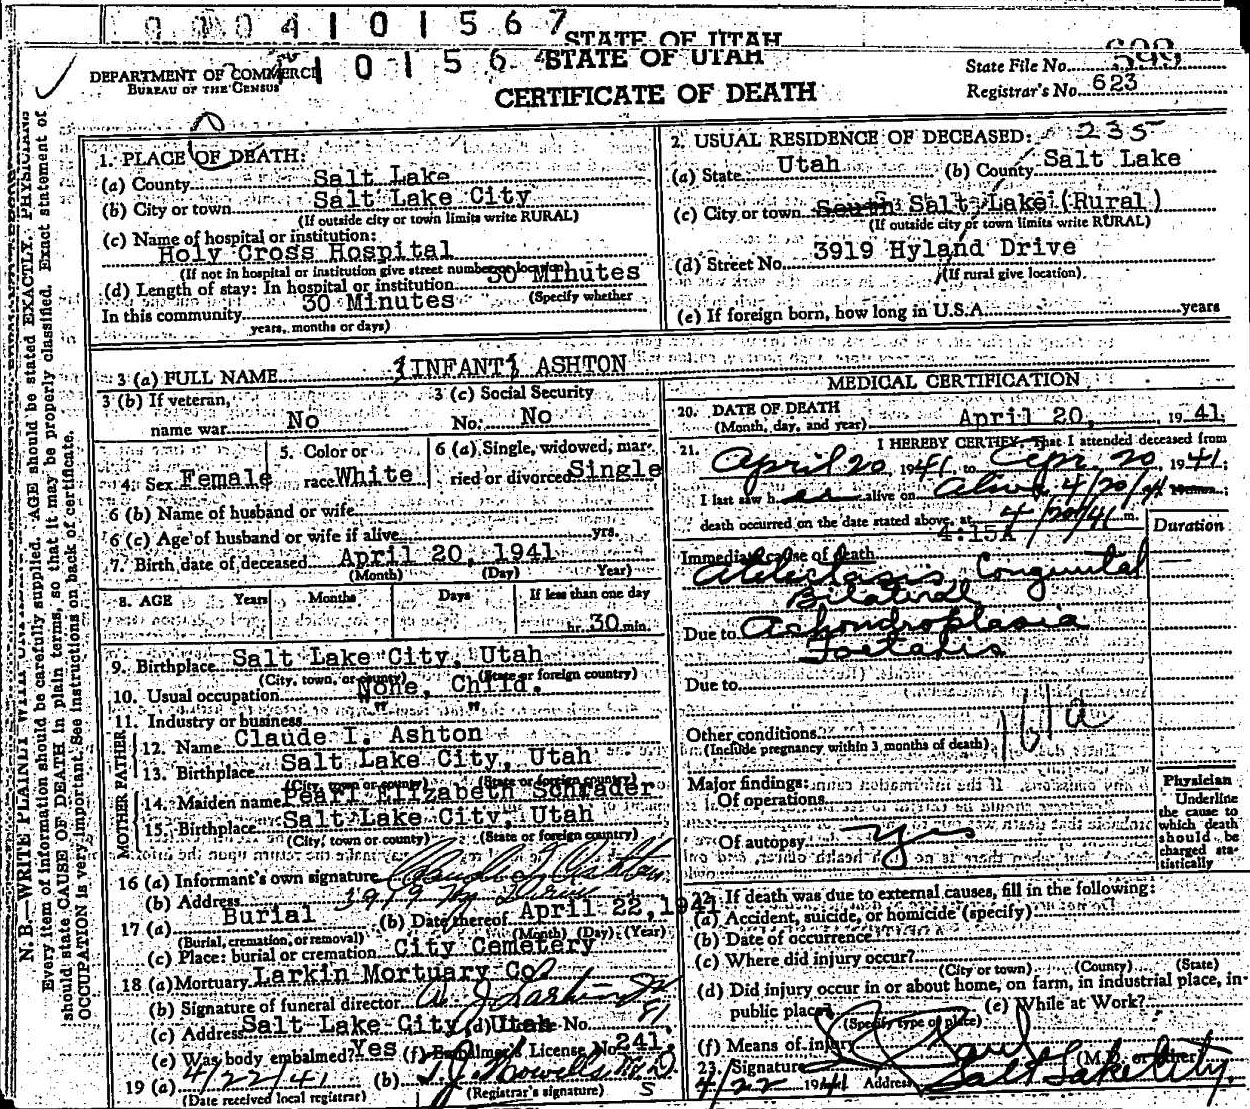 0004101567
STATE OF UTAH
STATE OF UTAH
DEPARTMENT OF COMMERCE
BUREAU OF THE CENSUS
State File No. 
Registrar's No. 623
CERTIFICATE OF DEATH
N. B.—WRITE PLAINLY WITH
Every item of information should be carefully supplied. AGE should be stated EXACTLY. PHYSICIANS
should state CAUSE OF DEATH in plain terms, so that it may be properly classified. Exact statement of
OCCUPATION is very important. See instructions on back of certificate.
1. PLACE OF DEATH:
(a) County Salt Lake
(b) City or town Salt Lake City
(If outside city or town limits write RURAL)
(c) Name of hospital or institution:
Holy Cross Hospital
(If not in hospital or institution give street number or location)
(d) Length of stay: In hospital or institution 30 Minutes
(Specify whether
In this community 30 Minutes
years, months or days)
2. USUAL RESIDENCE OF DECEASED: 235
(a) State Utah (b) County Salt Lake
(c) City or town South Salt Lake (Rural)
(If outside city or town limits write RURAL)
(d) Street No. 3919 Hyland Drive
(If rural give location)
(e) If foreign born, how long in U.S.A. years
3 (a) FULL NAME (INFANT) ASHTON
3 (b) If veteran,
name war No
3 (c) Social Security
No. No
4. Sex Female
5. Color or
race White
6 (a) Single, widowed, mar-
ried or divorced Single
6 (b) Name of husband or wife
6 (c) Age of husband or wife if alive yrs.
7. Birth date of deceased April 20, 1941
(Month) (Day) Year)
8. AGE Years Months Days If less than one day
hr. 30 min.
9. Birthplace Salt Lake City, Utah
(City, town, or county) (State or foreign country)
10. Usual occupation None, Child.
11. Industry or business " "
FATHER
12. Name Claude I. Ashton
13. Birthplace Salt Lake City, Utah
(City, town or county) (State or foreign country)
MOTHER
14. Maiden name Pearl Elizabeth Schrader
15. Birthplace Salt Lake City, Utah
(City, town or county) (State or foreign country)
16 (a) Informant's own signature Claude I. Ashton
(b) Address 3919 Hy. Drive
17 (a) Burial (b) Date thereof April 22, 1941
(Burial, cremation, or removal) (Month) (Day) (Year)
(c) Place: burial or cremation City Cemetery
18 (a) Mortuary Larkin Mortuary Co
(b) Signature of funeral director A. J. Larkin Jr
(c) Address Salt Lake City, Utah (d) License No. 81
(e) Was body embalmed? Yes (f) Embalmer's License No. 241.
19 (a) 4/22/41 (b) T.J. Howells M.D.
(Date received local registrar) (Registrar's signature) S
MEDICAL CERTIFICATION
20. DATE OF DEATH
(Month, day, and year) April 20, 1941
21. I HEREBY CERTIFY, That I attended deceased from
April 20, 1941, to Apr. 20, 1941;
I last saw her alive on Alive 4/20/41
death occurred on the date stated above, at 4/20/41 m.
4:15A
Duration
Immediate cause of death
Atelectasis Congenital
Bilateral
Due to Achondroplasia
Foetalis
Due to
161a
Other conditions
(Include pregnancy within 3 months of death)
Major findings:
Of operations
Of autopsy yes
Physician
Underline
the cause to
which death
should be
charged sta-
tistically
22. If death was due to external causes, fill in the following:
(a) Accident, suicide, or homicide (specify)
(b) Date of occurrence
(c) Where did injury occur?
(City or town) (County) (State)
(d) Did injury occur in or about home, on farm, in industrial place, in
public place? (e) While at Work?
(Specify type of place)
(f) Means of injury
23. Signature (M.D. or other)
4/22 1941 Address Salt Lake City,